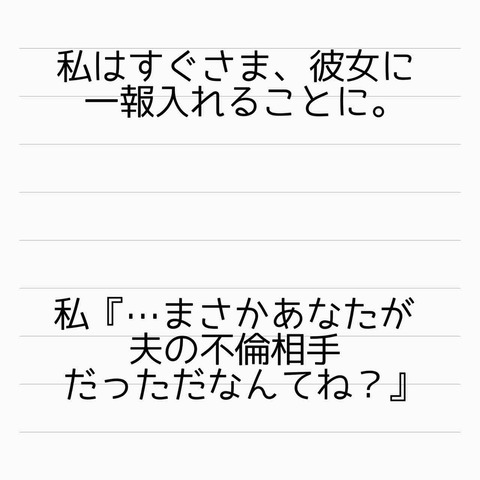 私はすぐさま、彼女に
一報入れることに。
私『…まさかあなたが
夫の不倫相手
だっただなんてね？』